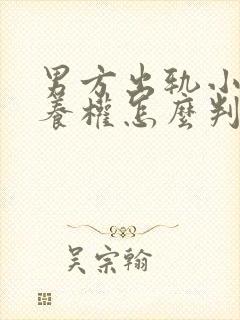 男方出轨小
養權怎麼判
吴宗翰